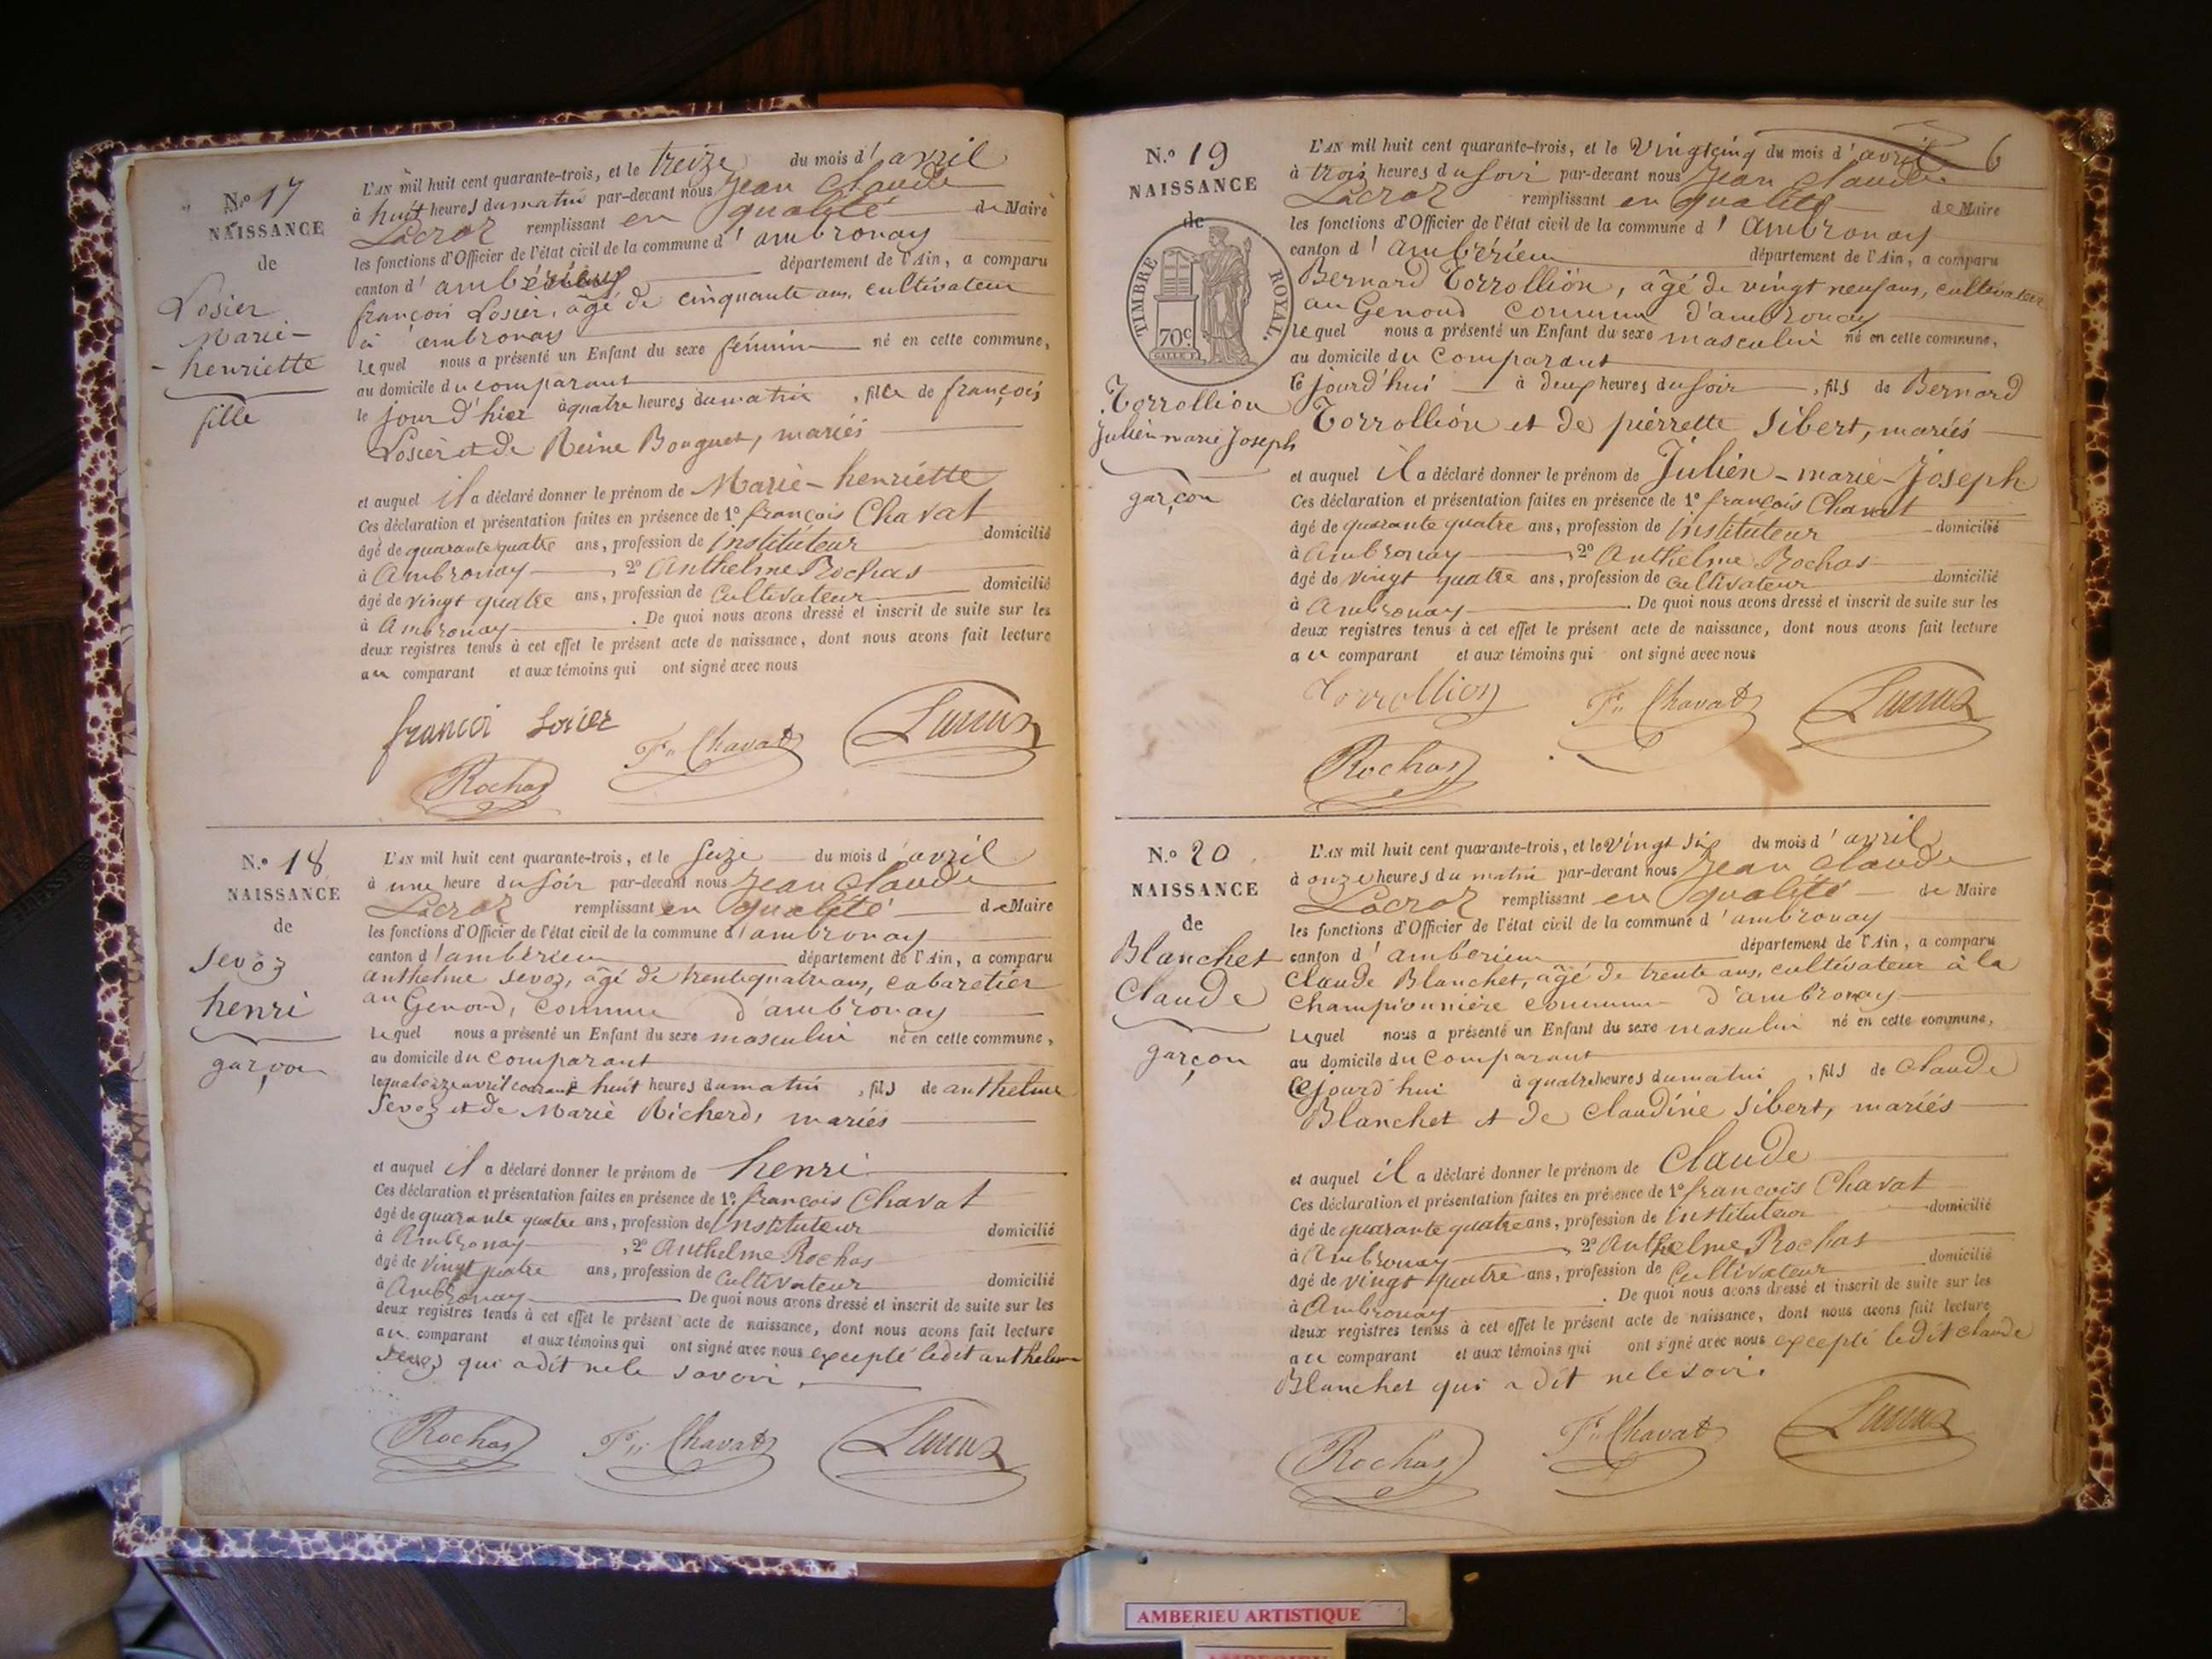 N.o 17
NAISSANCE
de
Losier
Marie-
-henriette
fille
L'AN mil huit cent quarante-trois, et le treize du mois d'avril
à huit heures du matin par-devant nous Jean Claude
Lacroz remplissant en qualité de Maire
les fonctions d'Officier de l'état civil de la commune d'ambronay
canton d'ambérieux département de l'Ain, a comparu
françois Losier, âgé de cinquante ans, cultivateur
à ambronay
lequel nous a présenté un Enfant du sexe féminin né en cette commune,
au domicile du comparant
le jour d'hier à quatre heures du matin, fille de françois
Losier et de Reine Bouguet, mariés
et auquel il a déclaré donner le prénom de Marie-henriette
Ces déclaration et présentation faites en présence de 1o françois Chavat
âgé de quarante quatre ans, profession de Instituteur domicilié
à Ambronay, 2o Anthelme Rochas
âgé de vingt quatre ans, profession de Cultivateur domicilié
à Ambronay. De quoi nous avons dressé et inscrit de suite sur les
deux registres tenus à cet effet le présent acte de naissance, dont nous avons fait lecture
au comparant et aux témoins qui ont signé avec nous
françoi Losier Fs Chavat Lacroz
Rochas
N.o 18
NAISSANCE
de
Sevoz
henri
garçon
L'AN mil huit cent quarante-trois, et le seize du mois d'avril
à une heure du soir par-devant nous Jean Claude
Lacroz remplissant en qualité de Maire
les fonctions d'Officier de l'état civil de la commune d'ambronay
canton d'ambérieu département de l'Ain, a comparu
anthelme Sevoz, âgé de trente quatre ans, cabaretier
au Genoud, commune d'ambronay
Lequel nous a présenté un Enfant du sexe masculin né en cette commune,
au domicile du comparant
le quatorze avril courant à huit heures du matin, fils de anthelme
Sevoz et de Marie Richerd, mariés
et auquel il a déclaré donner le prénom de henri
Ces déclaration et présentation faites en présence de 1o françois Chavat
âgé de quarante quatre ans, profession de Instituteur domicilié
à Ambronay, 2o Anthelme Rochas
âgé de vingt quatre ans, profession de Cultivateur domicilié
à Ambronay De quoi nous avons dressé et inscrit de suite sur les
deux registres tenus à cet effet le présent acte de naissance, dont nous avons fait lecture
au comparant et aux témoins qui ont signé avec nous excepté ledit anthelme
Sevoz qui a dit ne le savoir.
Rochas Fs Chavat Lacroz
6
N.o 19
NAISSANCE
de
TIMBRE ROYAL.
70c
Torrollion
Julien marie Joseph
garçon
L'AN mil huit cent quarante-trois, et le Vingt cinq du mois d'avril
à trois heures du soir par-devant nous Jean Claude
Lacroz remplissant en qualité de Maire
les fonctions d'Officier de l'état civil de la commune d'Ambronay
canton d'Ambérieu département de l'Ain, a comparu
Bernard Torrollion, âgé de vingt neuf ans, cultivateur
au Genoud commune d'ambronay
Lequel nous a présenté un Enfant du sexe masculin né en cette commune,
au domicile du comparant
Ce jourd'hui à deux heures du soir, fils de Bernard
Torrollion et de pierrette Sibert, mariés
et auquel il a déclaré donner le prénom de Julien-marie-Joseph
Ces déclaration et présentation faites en présence de 1o françois Chavat
âgé de quarante quatre ans, profession de Instituteur domicilié
à Ambronay, 2o Anthelme Rochas
âgé de vingt quatre ans, profession de Cultivateur domicilié
à Ambronay. De quoi nous avons dressé et inscrit de suite sur les
deux registres tenus à cet effet le présent acte de naissance, dont nous avons fait lecture
au comparant et aux témoins qui ont signé avec nous
Torrollion Fs Chavat Lacroz
Rochas
N.o 20
NAISSANCE
de
Blanchet
Claude
garçon
L'AN mil huit cent quarante-trois, et le Vingt six du mois d'avril
à onze heures du matin par-devant nous Jean Claude
Lacroz remplissant en qualité de Maire
les fonctions d'Officier de l'état civil de la commune d'ambronay
canton d'amberieu département de l'Ain, a comparu
Claude Blanchet, âgé de trente ans, cultivateur à la
Championnière commune d'ambronay
Lequel nous a présenté un Enfant du sexe masculin né en cette commune,
au domicile du comparant
Ce jourd'hui à quatre heures du matin, fils de Claude
Blanchet et de Claudine Sibert, mariés
et auquel il a déclaré donner le prénom de Claude
Ces déclaration et présentation faites en présence de 1o françois Chavat
âgé de quarante quatre ans, profession de Instituteur domicilié
à Ambronay, 2o Anthelme Rochas
âgé de vingt quatre ans, profession de Cultivateur domicilié
à Ambronay. De quoi nous avons dressé et inscrit de suite sur les
deux registres tenus à cet effet le présent acte de naissance, dont nous avons fait lecture
au comparant et aux témoins qui ont signé avec nous excepté ledit claude
Blanchet qui a dit ne le savoir.
Rochas Fs Chavat Lacroz
AMBERIEU ARTISTIQUE